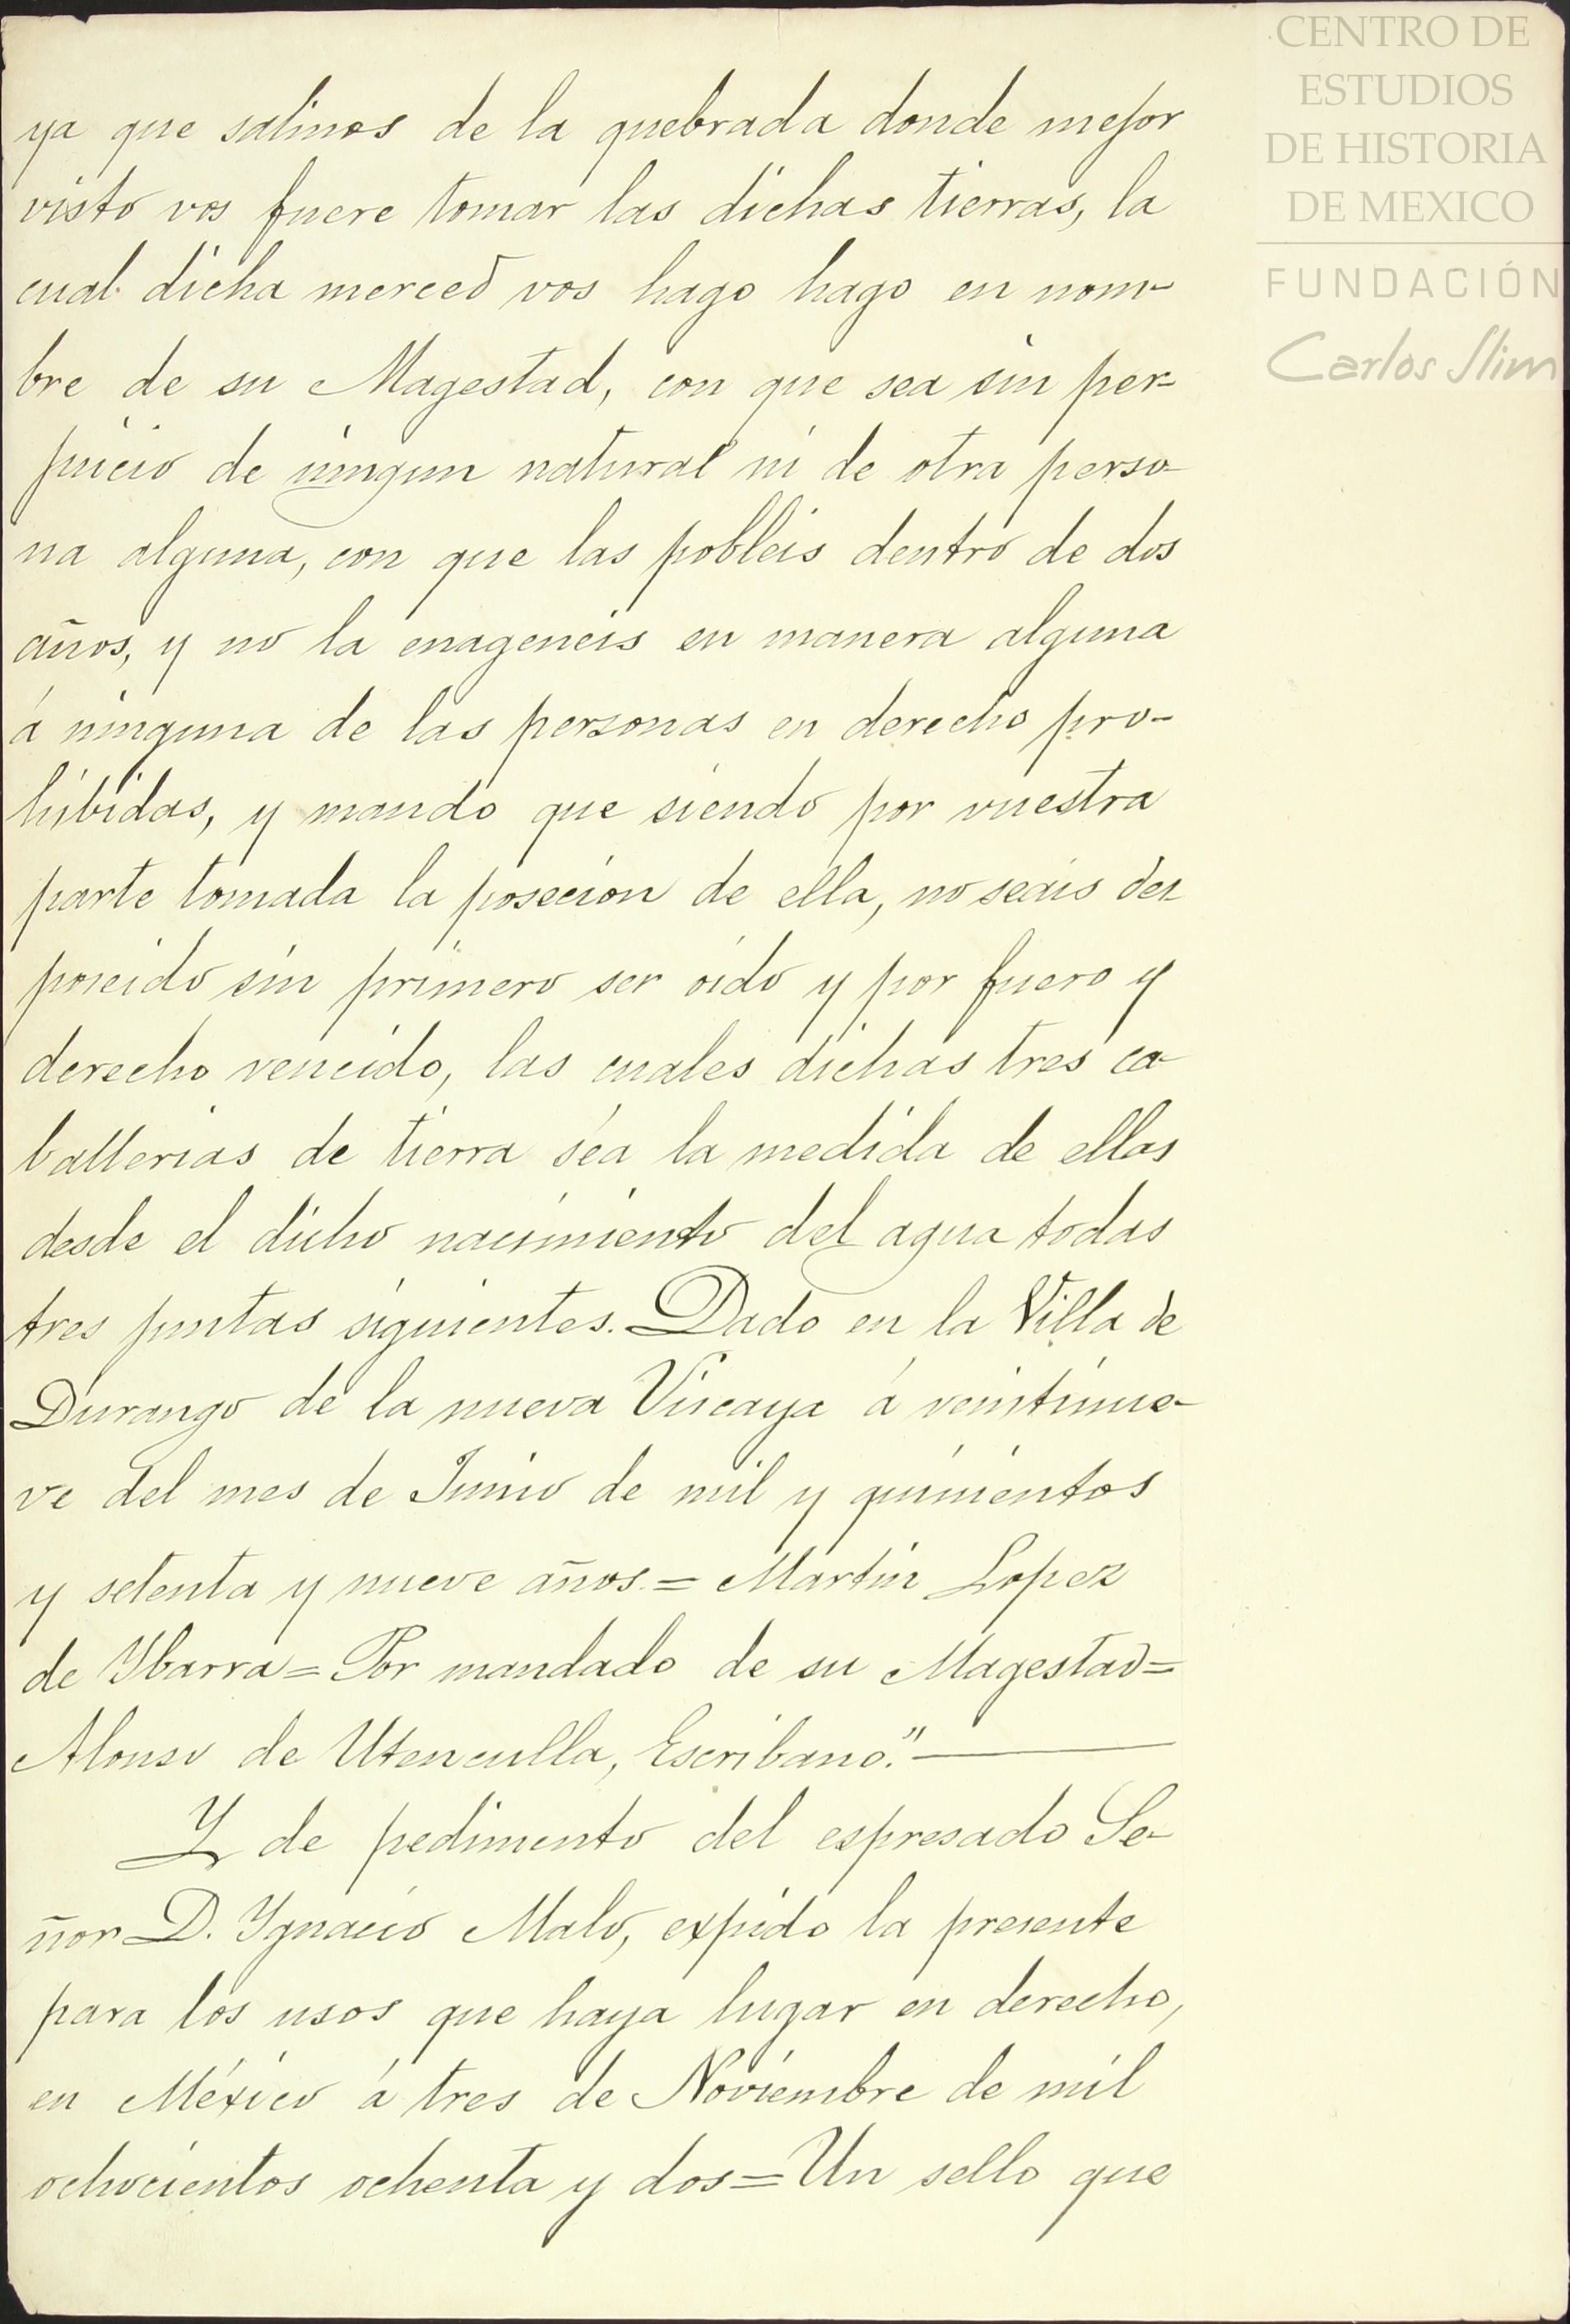 CENTRO DE
ESTUDIOS
DE HISTORIA
DE MEXICO
FUNDACIÓN
Carlos Slim
ya que salimos de la quebrada donde mejor
visto vos fuere tomar las dichas tierras, la
cual dicha merced vos hago hago en nom-
bre de su Magestad, con que sea sin per-
juicio de ningun natural ni de otra perso-
na alguna, con que las pobleis dentro de dos
años, y no la enageneis en manera alguna
á ninguna de las personas en derecho pro-
hibidas, y mando que siendo por vuestra
parte tomada la posecion de ella, no seais des
poseido sin primero ser oido y por fuero y
derecho vencido, las cuales dichas tres ca-
ballerias de tierra sea la medida de ellas
desde el dicho nacimiento del agua todas
tres juntas siguientes. Dado en la Villa de
Durango de la nueva Viscaya á veintinue-
ve del mes de Junio de mil y quinientos
y setenta y nueve años.= Martin Lopez
de Ybarra= Por mandado de su Magestad=
Alonso de Utenculla, Escribano."
Y de pedimento del espresado Se-
ñor D. Ygnacio Malo, expido la presente
para los usos que haya lugar en derecho,
en México á tres de Noviembre de mil
ochocientos ochenta y dos= Un sello que